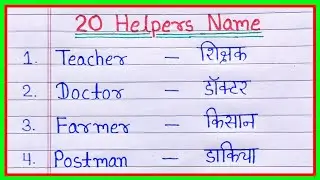 20 Helpers Name
1. Teacher – शिक्षक
2. Doctor – डॉक्टर
3. Farmer – किसान
4. Postman – डाकिया